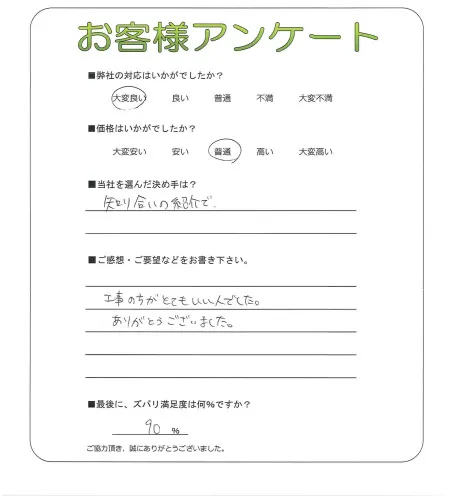 お客様アンケート
■弊社の対応はいかがでしたか？
大変良い 良い 普通 不満 大変不満
■価格はいかがでしたか？
大変安い 安い 普通 高い 大変高い
■当社を選んだ決め手は？
知り合いの紹介で、
■ご感想・ご要望などをお書き下さい。
工事の方がとてもいい人でした。
ありがとうございました。
■最後に、ズバリ満足度は何%ですか？
90 %
ご協力頂き、誠にありがとうございました。